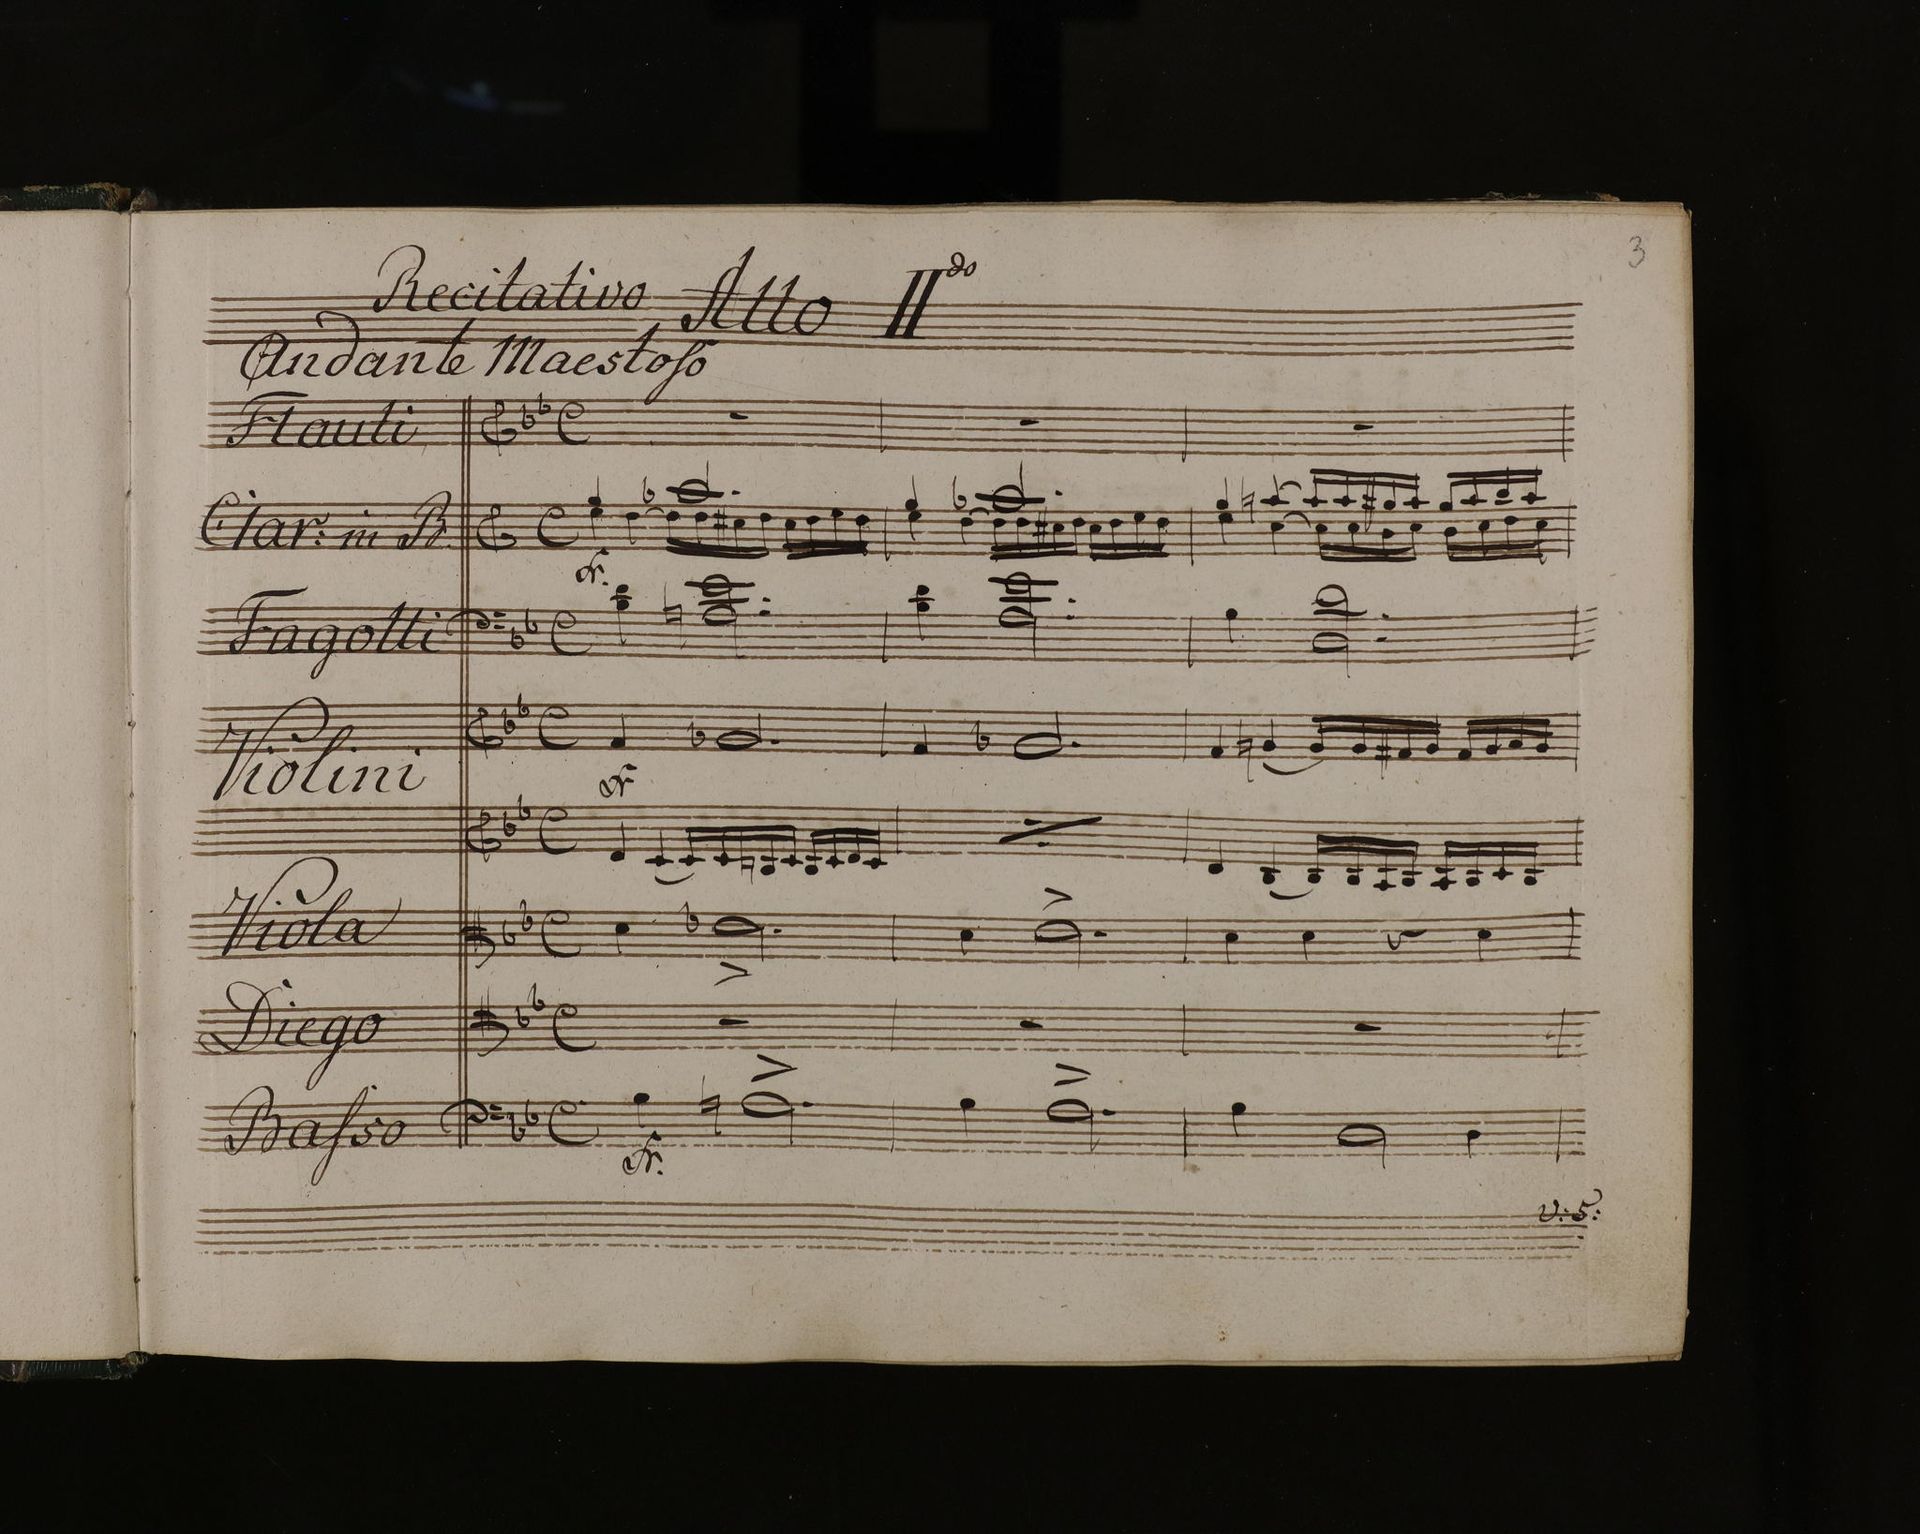 3
Recitativo Atto II do
Andante Maestoso
Flauti
Clar: in B.
fr.
Fagotti
Violini
fr
Viola
Diego
Basso
fr.
V: S: